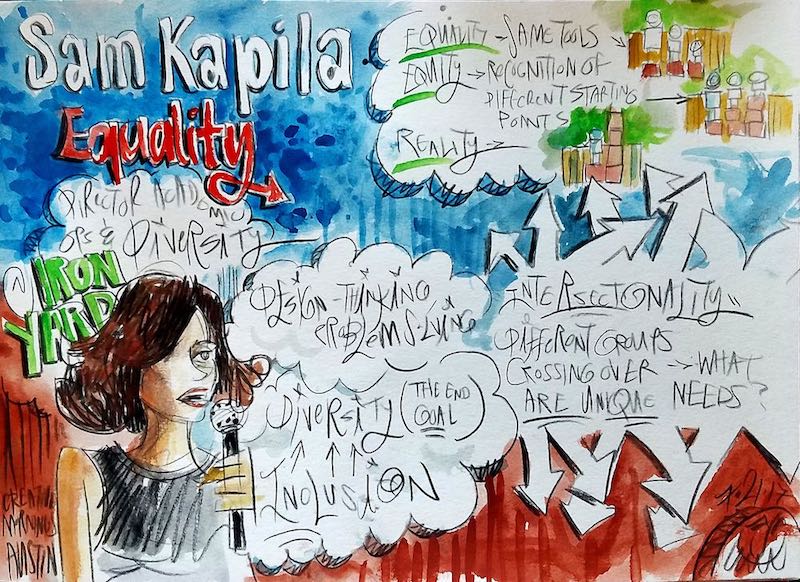 Sam Kapila
Equality
EQUALITY → SAME TOOLS
EQUITY → RECOGNITION OF
DIFFERENT STARTING
POINTS
REALITY →
DIRECTOR ACADEMIC
OPS & DIVERSITY
@ IRON
YARD
DESIGN-THINKING
PROBLEM SOLVING
DIVERSITY (THE END
GOAL)
INCLUSION
INTERSECTIONALITY
DIFFERENT GROUPS
CROSSING OVER → WHAT
ARE UNIQUE NEEDS?
CREATIVE
MORNINGS
AUSTIN